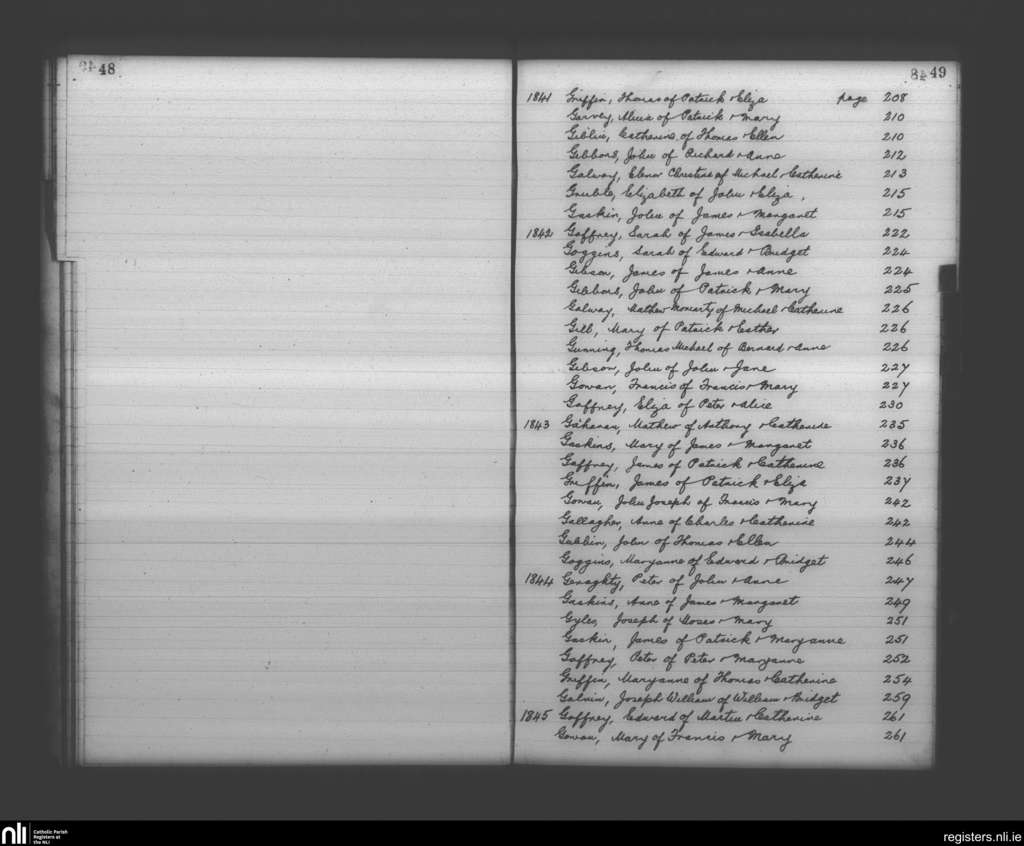 48
49
1841 Griffin, Thomas of Patrick & Eliza page 208
Garvey, of Patrick & Mary 210
Giblin, Catherine of Thomas & Ellen 210
Gibbons, John of Richard & Anne 212
Galway, Elenor Christina of Michael & Catherine 213
Elizabeth of John & Eliza, 215
Gaskin, John of James & Margaret 215
1842 Gaffney, Sarah of James & Isabella 222
Goggins, Sarah of Edward & Bridget 224
Gibson, James of James & Anne 224
Gibbons, John of Patrick & Mary 225
Galway, Mathew Moriarty of Michael & Catherine 226
Gill, Mary of Patrick & Esther 226
Gunning, Thomas Michael of Bernard & Anne 226
Gibson, John of John & Jane 227
Gowan, Francis of Francis & Mary 227
Gaffney, Eliza of Peter & Alice 230
1843 Gahanan, Mathew of Anthony & Catherine 235
Gaskins, Mary of James & Margaret 236
Gaffney, James of Patrick & Catherine 236
Griffin, James of Patrick & Eliza 237
Gowan, John Joseph of Francis & Mary 242
Gallagher, Anne of Charles & Catherine 242
Giblin, John of Thomas & Ellen 244
Goggins, Maryanne of Edward & Bridget 246
1844 Geraghty, Peter of John & Anne 247
Gaskins, Anne of James & Margaret 249
Gyles, Joseph of Moses & Mary 251
Gaskin, James of Patrick & Maryanne 251
Gaffney, Peter of Peter & Maryanne 252
Griffin, Maryanne of Thomas & Catherine 254
Galvin, Joseph William of William & Bridget 259
1845 Gaffney, Edward of Martin & Catherine 261
Gowan, Mary of Francis & Mary 261
nli Catholic Parish
Registers at
the NLI
registers.nli.ie